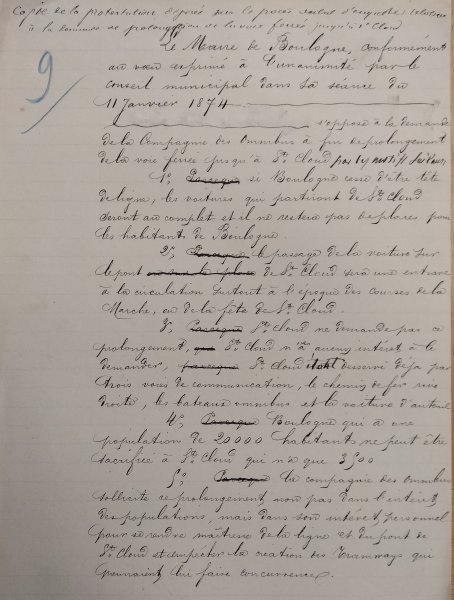 Copie de la protestation déposée sur le procès verbal d'enquête relative
à la demande de prolongation de la voie ferrée jusqu'à St Cloud
9
Le Maire de Boulogne, conformément
au vœu exprimé à l'unanimité par le
conseil municipal dans sa séance du
11 Janvier 1874
s'oppose à la demande
de la Compagnie des Omnibus à fin de prolongement
de la voie ferrée jusqu'à St Cloud par les motifs suivants
1o, Parceque si Boulogne cesse d'être tête
de ligne, les voitures qui partiront de St Cloud
seront au complet et il ne restera pas de places pour
les habitants de Boulogne.
2o, Parceque le passage de la voiture sur
le pont de St Cloud sera une entrave
à la circulation surtout à l'époque des courses de la
Marche, ou de la fête de St Cloud.
3o, Parceque St Cloud ne demande pas ce
prolongement, que St Cloud n'a aucun intérêt à le
demander, parceque St Cloud étant desservi déjà par
trois voies de communication, le chemin de fer rive
droite, les bateaux omnibus et la voiture d'auteuil
4o, Parceque Boulogne qui a une
population de 20000 habitants ne peut être
sacrifiée à St Cloud qui n'a que 3500
5o, Parceque la compagnie des Omnibus
sollicite ce prolongement non pas dans l'intérêt
des populations, mais dans son intérêt personnel
pour se rendre maîtresse de la ligne et du pont de
St Cloud et empêcher la création des Tramways qui
pourraient lui faire concurrence.